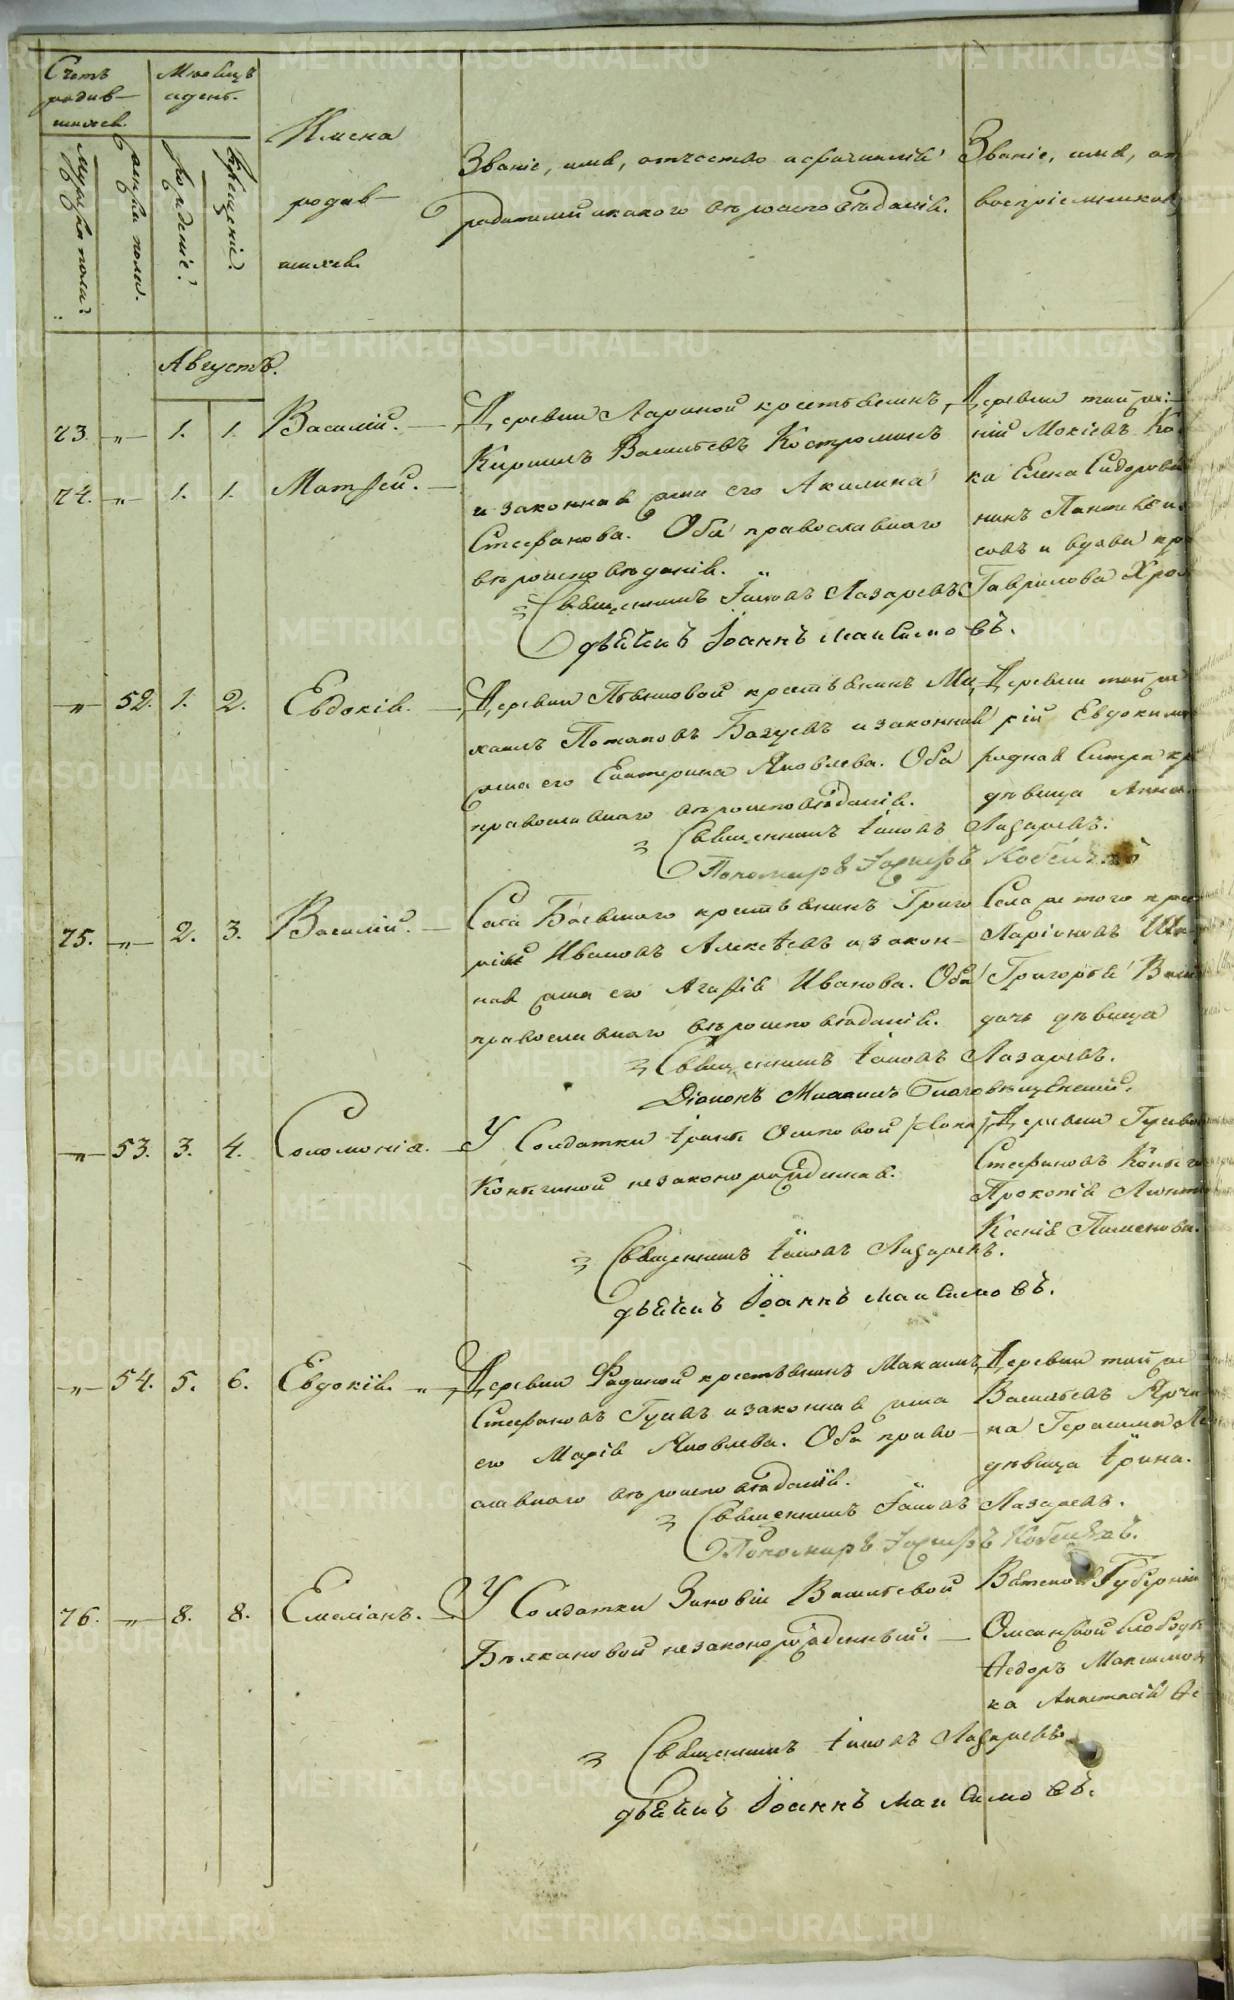 Счетъ
родив-
шихся.
Мѣсяцъ
и день.
Мужеска пола?
Женска пола.
Рожденіе?
Крещеніе?
Имена
родив-
шихся.
Званіе, имя, отчество и фамилія
родителей и какого вѣроисповѣданія.
Званіе, имя, от
воспріемниковъ
Августъ.
73. -„- 1. 1. Василій. —
74. -„- 1. 1. Матѳей. —
Деревни Лариной крестьянинъ
Кирилъ Васильевъ Костроминъ
и законная жена его Акилина
Стефанова. Оба православнаго
вѣроисповѣданія.
Деревни той же
ній Мокіевъ Ко
ка Елена Сидорова
нинъ Пантелѣи
совъ и вдова кр
Гаврилова Хром
Священникъ Іаковъ Лазаревъ
дьячикъ Іоаннъ Максимовъ.
-„- 52. 1. 2. Евдокія. —
Деревни Пьянковой крестьянинъ Ми
хаилъ Потаповъ Багуевъ и законная
жена его Екатерина Яковлева. Оба
православнаго вѣроисповѣданія.
Деревни той же
рій Евдокимо
родная Сестра кр
дѣвица Анна
Священникъ Іаковъ Лазаревъ.
Пономарь
75. -„- 2. 3. Василій. —
Села Баевскаго крестьянинъ Григо
рій Ивановъ Алексѣевъ и закон-
ная жена его Агафія Иванова. Оба
православнаго вѣроисповѣданія.
Села же того кре
Ларіоновъ
Григорья Васи
дочь дѣвица
Священникъ Іаковъ Лазаревъ.
Діаконъ Михаилъ Благовѣщенскій.
-„- 53. 3. 4. Соломонія. —
У Солдатки Ирины Осиповой
незаконорожденная.
Деревни Гусевой
Стефановъ
Прокопія
Ксенія Пименова.
Священникъ Іаковъ Лазаревъ.
дьячикъ Іоаннъ Максимовъ.
-„- 54. 5. 6. Евдокія. -„-
Деревни Фадиной крестьянинъ Максимъ
Стефановъ Гусевъ и законная жена
его Марія Яковлева. Оба право-
славнаго вѣроисповѣданія.
Деревни той же
Васильевъ
на Герасима
дѣвица Ирина.
Священникъ Іаковъ Лазаревъ.
Пономарь
76. -„- 8. 8. Емеліанъ. —
У Солдатки Зиновіи Васильевой
незаконорожденный. —
Вятской Губерніи
Слободы
Ѳедоръ Максимов
ка Анастасія Ѳе
Священникъ Іаковъ Лазаревъ
дьячикъ Іоаннъ Максимовъ.
METRIKI.GASO-URAL.RU